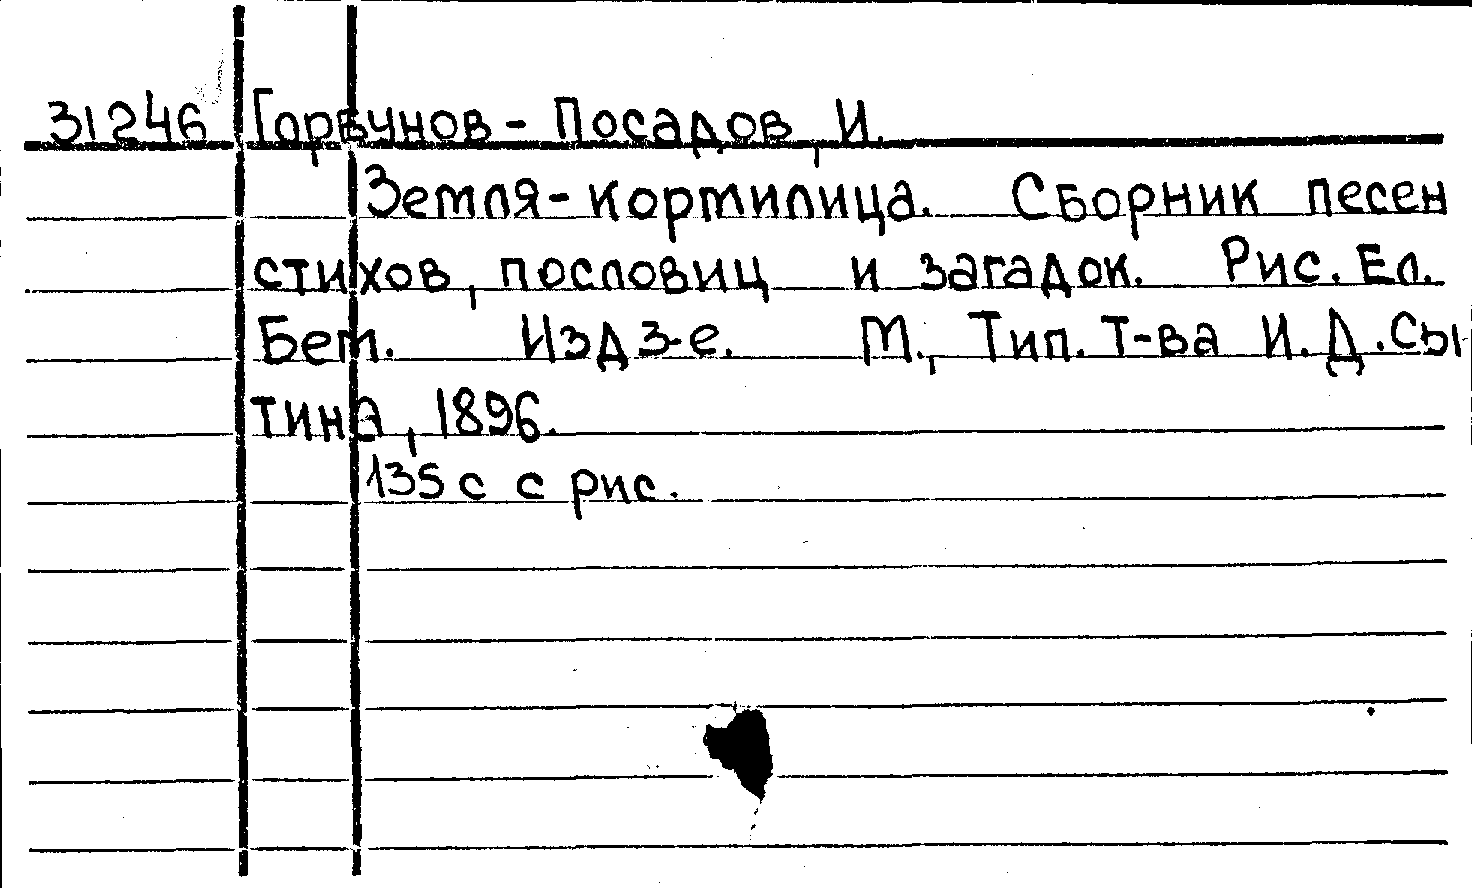 31246 Горбунов - Посадов И.
Земля - кортилица. Сборник песен
стихов, пословиц и загадок. Рис. Ел.
Бем. Изд 3-е. М., Тип. Т-ва И. Д. Сы
тина, 1896.
135 с с рис.